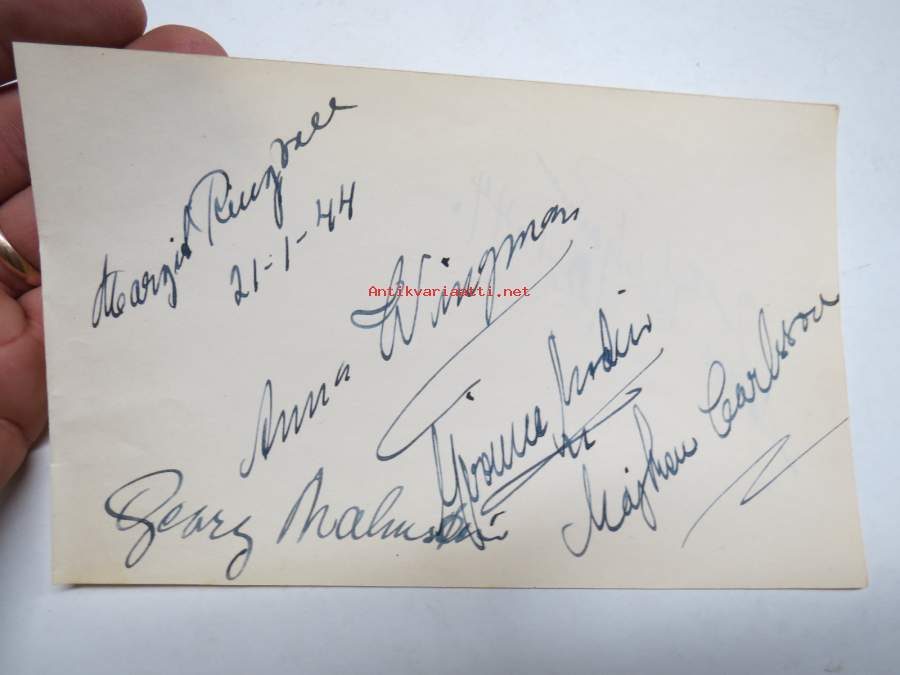 Margit Ringdall
21-1-44
Antikvariaatti.net
Anna Wingman
Yvonne Nodin
Majken Carlsson
Georg Malmstén